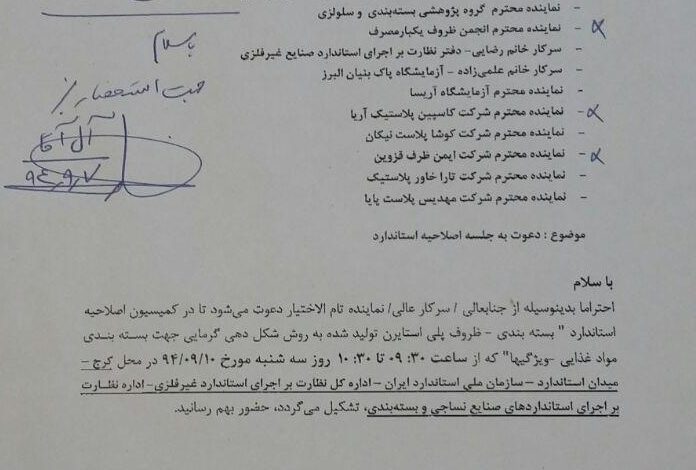 - نماینده محترم گروه پژوهشی بسته‌بندی و سلولزی
- نماینده محترم انجمن ظروف یکبارمصرف
- سرکار خانم رضایی- دفتر نظارت بر اجرای استاندارد صنایع غیرفلزی
- سرکار خانم علمی‌زاده - آزمایشگاه پاک بنیان البرز
- نماینده محترم آزمایشگاه آریسا
- نماینده محترم شرکت کاسپین پلاستیک آریا
- نماینده محترم شرکت کوشا پلاست نیکان
- نماینده محترم شرکت ایمن ظرف قزوین
- نماینده محترم شرکت تارا خاور پلاستیک
- نماینده محترم شرکت مهدیس پلاست پایا
با سلام
جهت استحضار
آل آقا
۹۴,۹,۷
موضوع : دعوت به جلسه اصلاحیه استاندارد
با سلام
احتراما بدینوسیله از جنابعالی / سرکار عالی/ نماینده تام الاختیار دعوت می‌شود تا در کمیسیون اصلاحیه
استاندارد " بسته بندی - ظروف پلی استایرن تولید شده به روش شکل دهی گرمایی جهت بسته بندی
مواد غذایی -ویژگیها" که از ساعت ۰۹:۳۰ تا ۱۰:۳۰ روز سه شنبه مورخ ۹۴/۰۹/۱۰ در محل کرج –
میدان استاندارد – سازمان ملی استاندارد ایران –اداره کل نظارت بر اجرای استاندارد غیرفلزی-اداره نظارت
بر اجرای استانداردهای صنایع نساجی و بسته‌بندی، تشکیل می‌گردد، حضور بهم رسانید.